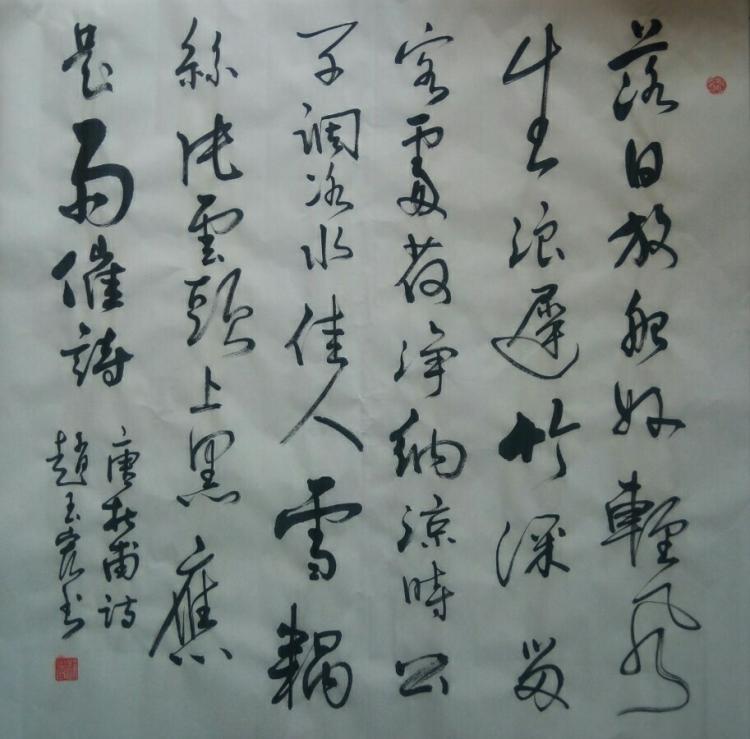 落日放船好輕風
生浪遲竹深留
客處荷净納涼時公
子調冰水佳人雪耦
絲片雲頭上黑應
是雨催詩
唐杜甫詩
趙玉书